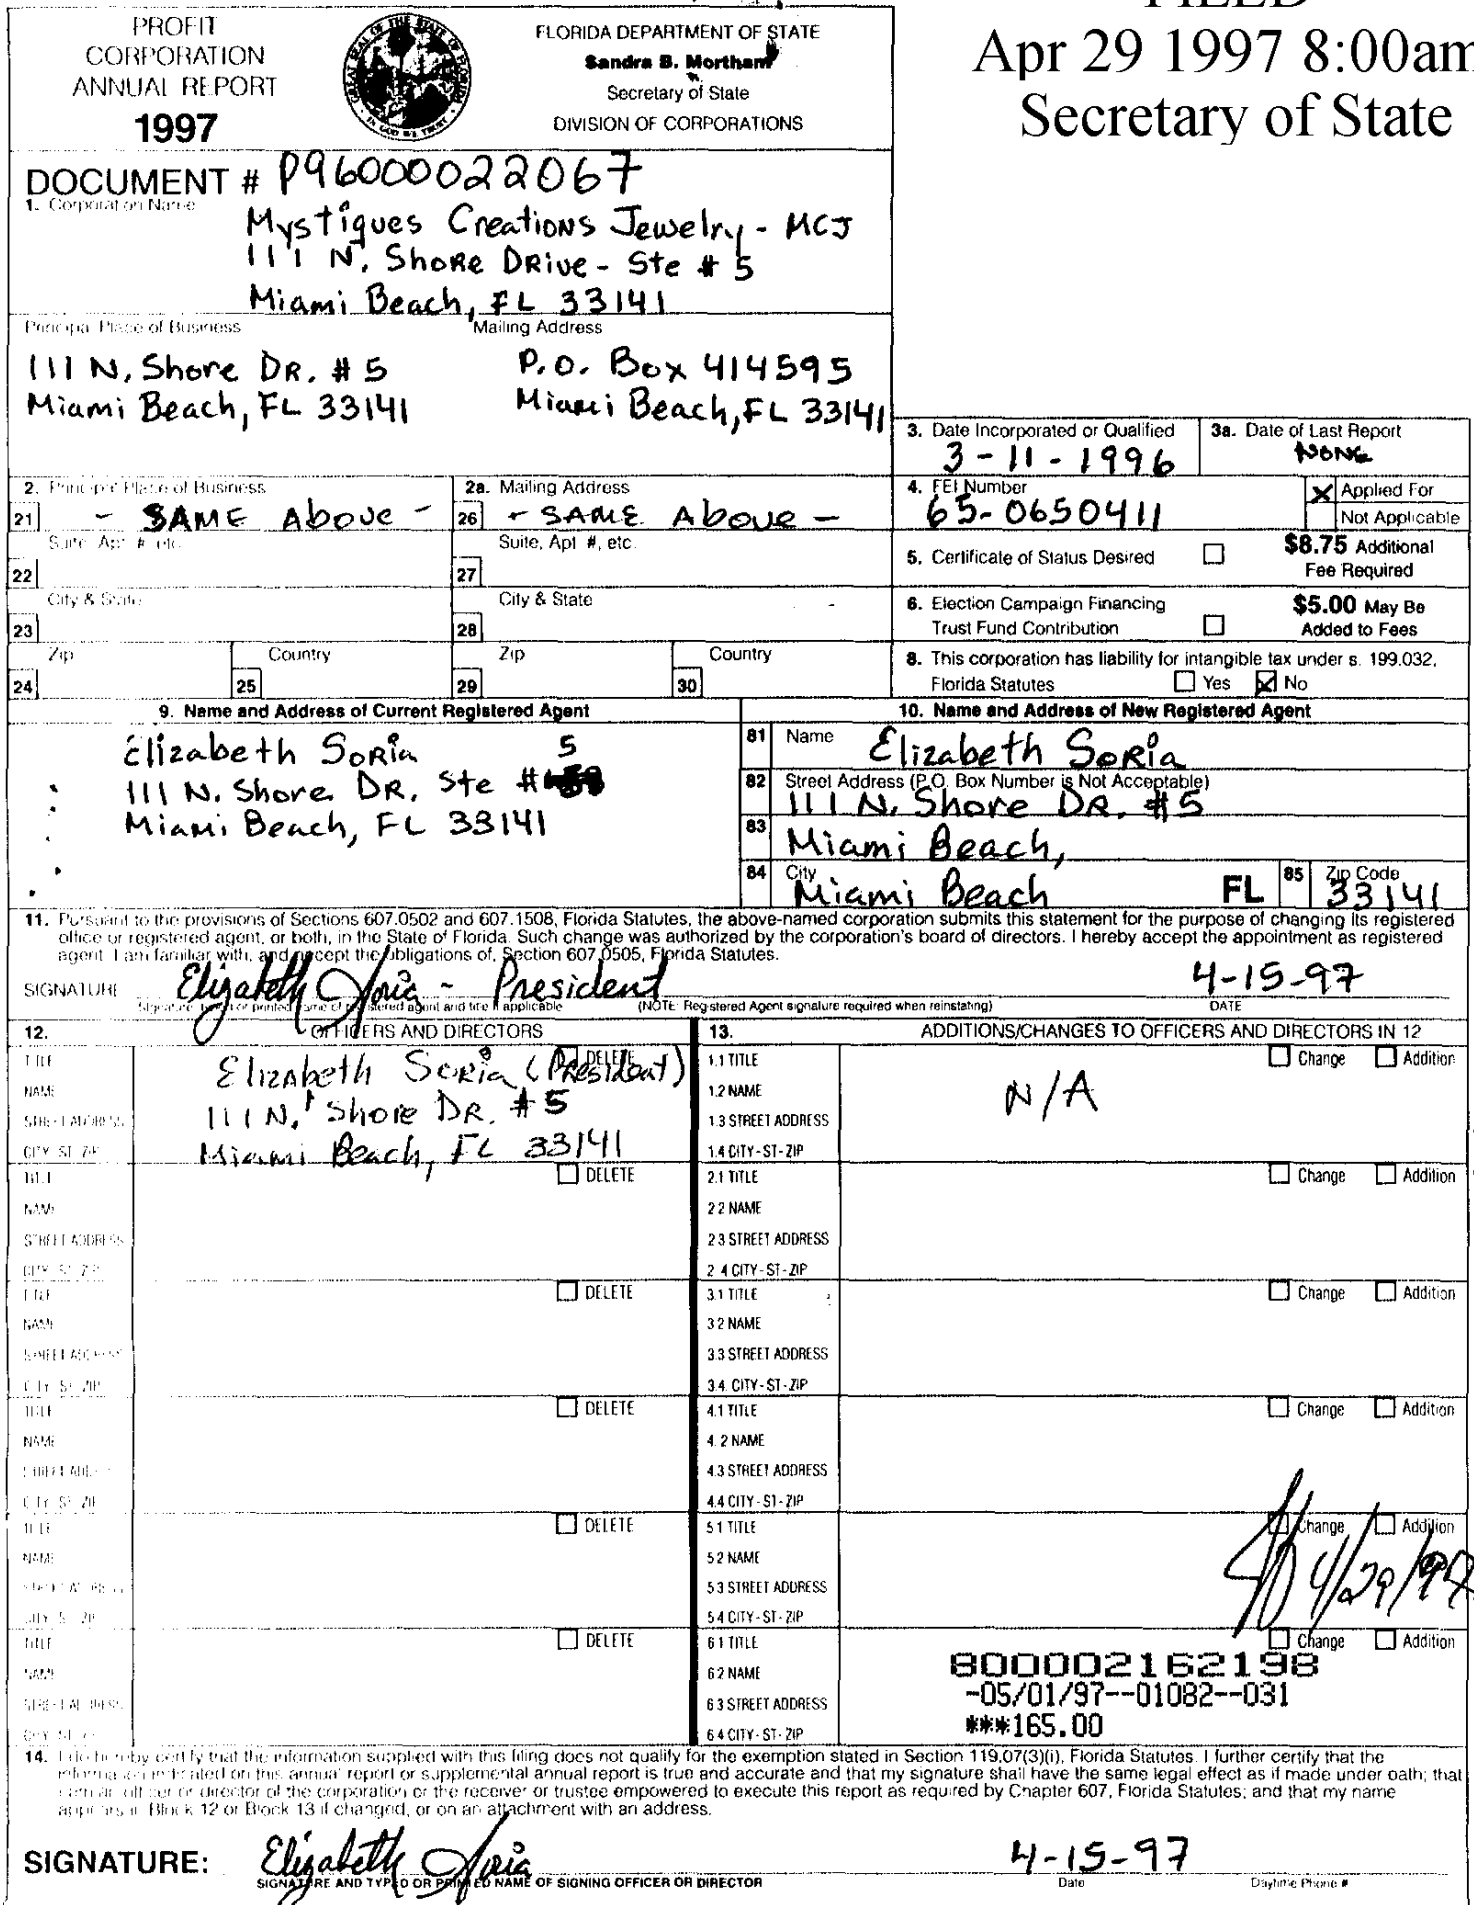 PROFIT
CORPORATION
ANNUAL REPORT
1997
FLORIDA DEPARTMENT OF STATE
Sandra B. Mortham
Secretary of State
DIVISION OF CORPORATIONS
FILED
Apr 29 1997 8:00am
Secretary of State
DOCUMENT # P96000022067
1. Corporation Name
Mystiques Creations Jewelry - MCJ
111 N. Shore Drive - Ste # 5
Miami Beach, FL 33141
Principal Place of Business
Mailing Address
111 N. Shore DR. # 5
Miami Beach, FL 33141
P.O. Box 414595
Miami Beach, FL 33141
3. Date Incorporated or Qualified
3-11-1996
3a. Date of Last Report
NONE
2. Principal Place of Business
21 - SAME Above -
2a. Mailing Address
26 - SAME Above -
4. FEI Number
65-0650411
X Applied For
Not Applicable
Suite, Apt #, etc.
22
Suite, Apt #, etc.
27
5. Certificate of Status Desired
$8.75 Additional
Fee Required
City & State
23
City & State
28
6. Election Campaign Financing
Trust Fund Contribution
$5.00 May Be
Added to Fees
Zip
24
Country
25
Zip
29
Country
30
8. This corporation has liability for intangible tax under s. 199.032,
Florida Statutes Yes X No
9. Name and Address of Current Registered Agent
Elizabeth Soria
111 N. Shore DR. Ste # 5
Miami Beach, FL 33141
10. Name and Address of New Registered Agent
81 Name Elizabeth Soria
82 Street Address (P.O. Box Number is Not Acceptable)
111 N. Shore DR. #5
83 Miami Beach,
84 City Miami Beach FL 85 Zip Code 33141
11. Pursuant to the provisions of Sections 607.0502 and 607.1508, Florida Statutes, the above-named corporation submits this statement for the purpose of changing its registered
office or registered agent, or both, in the State of Florida. Such change was authorized by the corporation's board of directors. I hereby accept the appointment as registered
agent. I am familiar with, and accept the obligations of, Section 607.0505, Florida Statutes.
SIGNATURE Elizabeth Soria - President 4-15-97
Signature, typed or printed name of registered agent and title if applicable (NOTE: Registered Agent signature required when reinstating) DATE
12. OFFICERS AND DIRECTORS
13. ADDITIONS/CHANGES TO OFFICERS AND DIRECTORS IN 12
TITLE DELETE
NAME Elizabeth Soria (President)
STREET ADDRESS 111 N. Shore DR. #5
CITY-ST-ZIP Miami Beach, FL 33141
1.1 TITLE Change Addition
1.2 NAME N/A
1.3 STREET ADDRESS
1.4 CITY-ST-ZIP
TITLE DELETE
NAME
STREET ADDRESS
CITY-ST-ZIP
2.1 TITLE Change Addition
2.2 NAME
2.3 STREET ADDRESS
2.4 CITY-ST-ZIP
TITLE DELETE
NAME
STREET ADDRESS
CITY-ST-ZIP
3.1 TITLE Change Addition
3.2 NAME
3.3 STREET ADDRESS
3.4. CITY-ST-ZIP
TITLE DELETE
NAME
STREET ADDRESS
CITY-ST-ZIP
4.1 TITLE Change Addition
4.2 NAME
4.3 STREET ADDRESS
4.4 CITY-ST-ZIP
TITLE DELETE
NAME
STREET ADDRESS
CITY-ST-ZIP
5.1 TITLE Change Addition
5.2 NAME
5.3 STREET ADDRESS
5.4 CITY-ST-ZIP
4/29/97
TITLE DELETE
NAME
STREET ADDRESS
CITY-ST-ZIP
6.1 TITLE Change Addition
6.2 NAME
6.3 STREET ADDRESS
6.4 CITY-ST-ZIP
800002162198
-05/01/97--01082--031
***165.00
14. I do hereby certify that the information supplied with this filing does not qualify for the exemption stated in Section 119.07(3)(i), Florida Statutes. I further certify that the
information indicated on this annual report or supplemental annual report is true and accurate and that my signature shall have the same legal effect as if made under oath; that
I am an officer or director of the corporation or the receiver or trustee empowered to execute this report as required by Chapter 607, Florida Statutes; and that my name
appears in Block 12 or Block 13 if changed, or on an attachment with an address.
SIGNATURE: Elizabeth Soria 4-15-97
SIGNATURE AND TYPED OR PRINTED NAME OF SIGNING OFFICER OR DIRECTOR Date Daytime Phone #